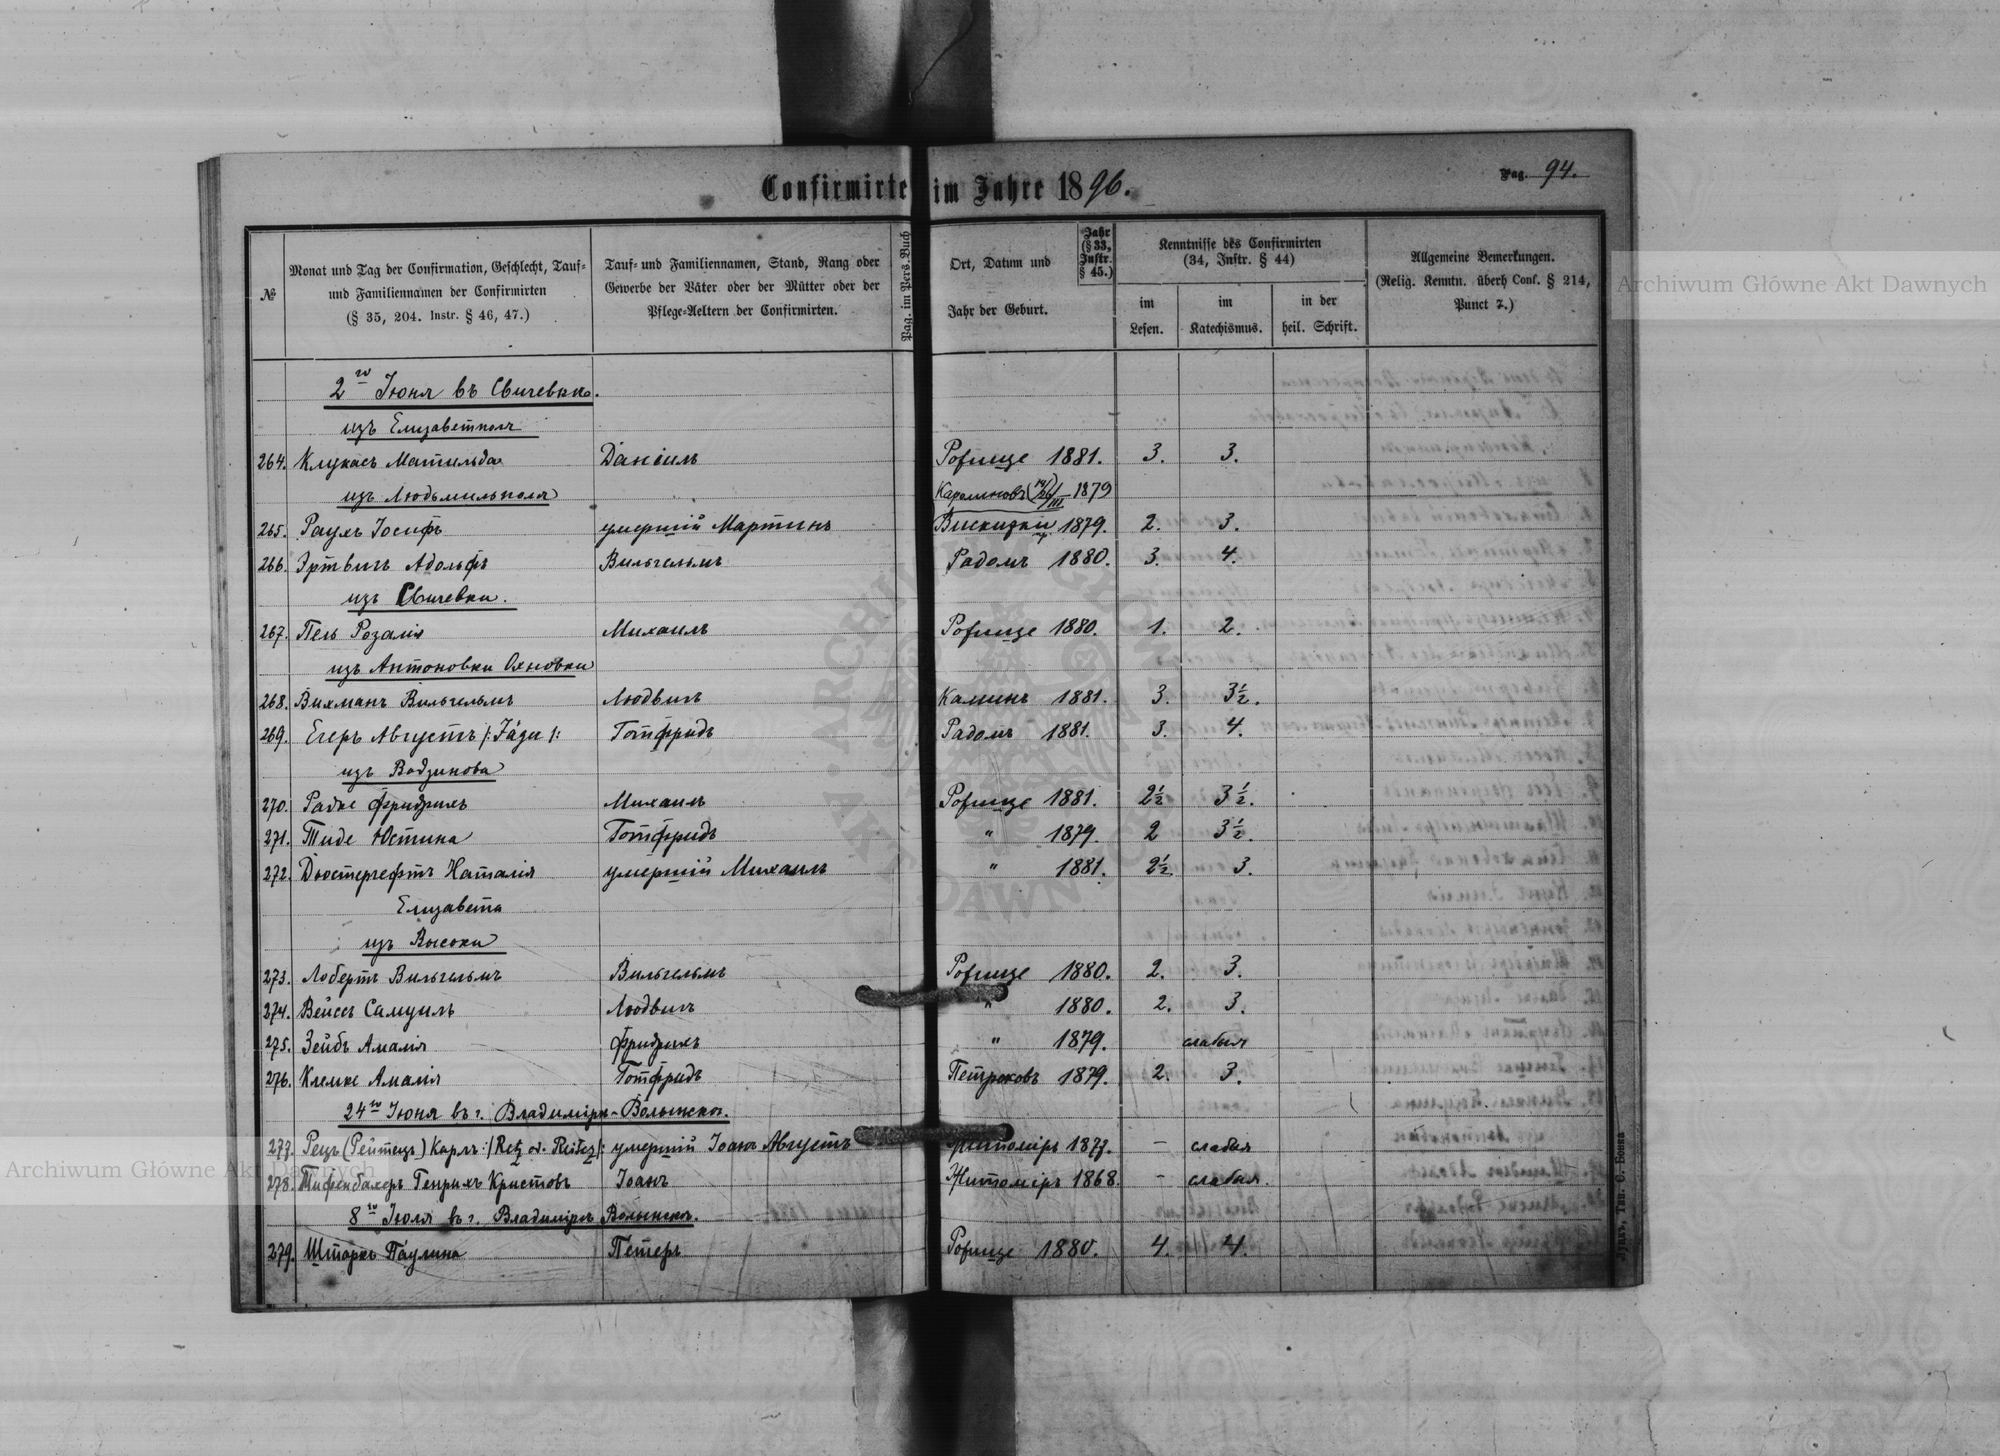 Confirmirte im Jahre 1896.
Pag. 94.
№
Monat und Tag der Confirmation, Geschlecht, Tauf=
und Familiennamen der Confirmirten
(§ 35, 204. Instr. § 46, 47.)
Tauf= und Familiennamen, Stand, Rang oder
Gewerbe der Väter oder der Mütter oder der
Pflege=Aeltern der Confirmirten.
Pag. im Pers. Buch
Ort, Datum und
Jahr der Geburt.
Jahr
(§ 33,
Instr.
§ 45.)
Kenntnisse des Confirmirten
(34, Instr. § 44)
im
Lesen.
im
Katechismus.
in der
heil. Schrift.
Allgemeine Bemerkungen.
(Relig. Kenntn. überh Conf. § 214,
Punct 7.)
2го Іюня въ Свичевкѣ.
изъ Елизаветполя
264. Клукасъ Матильда Даніилъ Рожище 1881. 3. 3.
изъ Людьмильполя Каролиновъ 1879
265. Раухъ Іосифъ умершій Мартинъ 1879. 2. 3.
266. Эртвигъ Адольфъ Вильгельмъ Радомъ 1880. 3. 4.
изъ Свичевки.
267. Розалія Михаилъ Рожище 1880. 1. 2.
изъ Антоновки Охновки
268. Вихманъ Вильгельмъ Людвигъ Калишъ 1881. 3. 3½.
269. Егеръ Августъ Готфридъ Радомъ 1881. 3. 4.
изъ Водзинова
270. Радке Фридрихъ Михаилъ Рожище 1881. 2½ 3½.
271. Тиде Юстина Готфридъ " 1879. 2 3½.
272. Дюстергефтъ Наталія умершій Михаилъ " 1881. 2½. 3.
Елизавета
изъ Высоки
273. Лобертъ Вильгельмъ Вильгельмъ Рожище 1880. 2. 3.
274. Вейссъ Самуилъ Людвигъ " 1880. 2. 3.
275. Зейбъ Амалія Фридрихъ " 1879. слабыя
276. Клемке Амалія Готфридъ Петроковъ 1879. 2. 3.
24го Іюня въ г. Владимірѣ-Волынскѣ.
277. Рецъ (Рейтецъ) Карлъ :/Retz od. Reitez/: умершій Іоанъ Августъ Житоміръ 1877. – слабыя
278. Тифенбахеръ Генрихъ Кристовъ Іоанъ Житоміръ 1868. – слабыя.
8го Іюля въ г. Владимірѣ Волынскѣ.
279. Штаркъ Паулина Петеръ Рожище 1880. 4. 4.
Archiwum Główne Akt Dawnych
Archiwum Główne Akt Dawnych